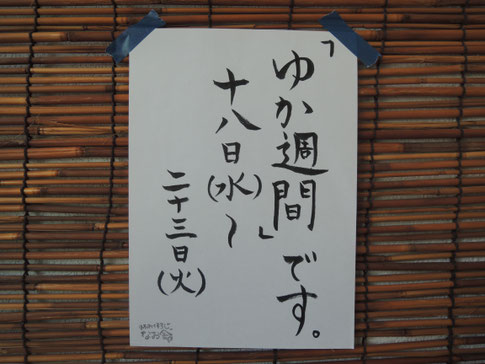 「ゆか週間」です。
十八日(水)〜
二十三日(火)